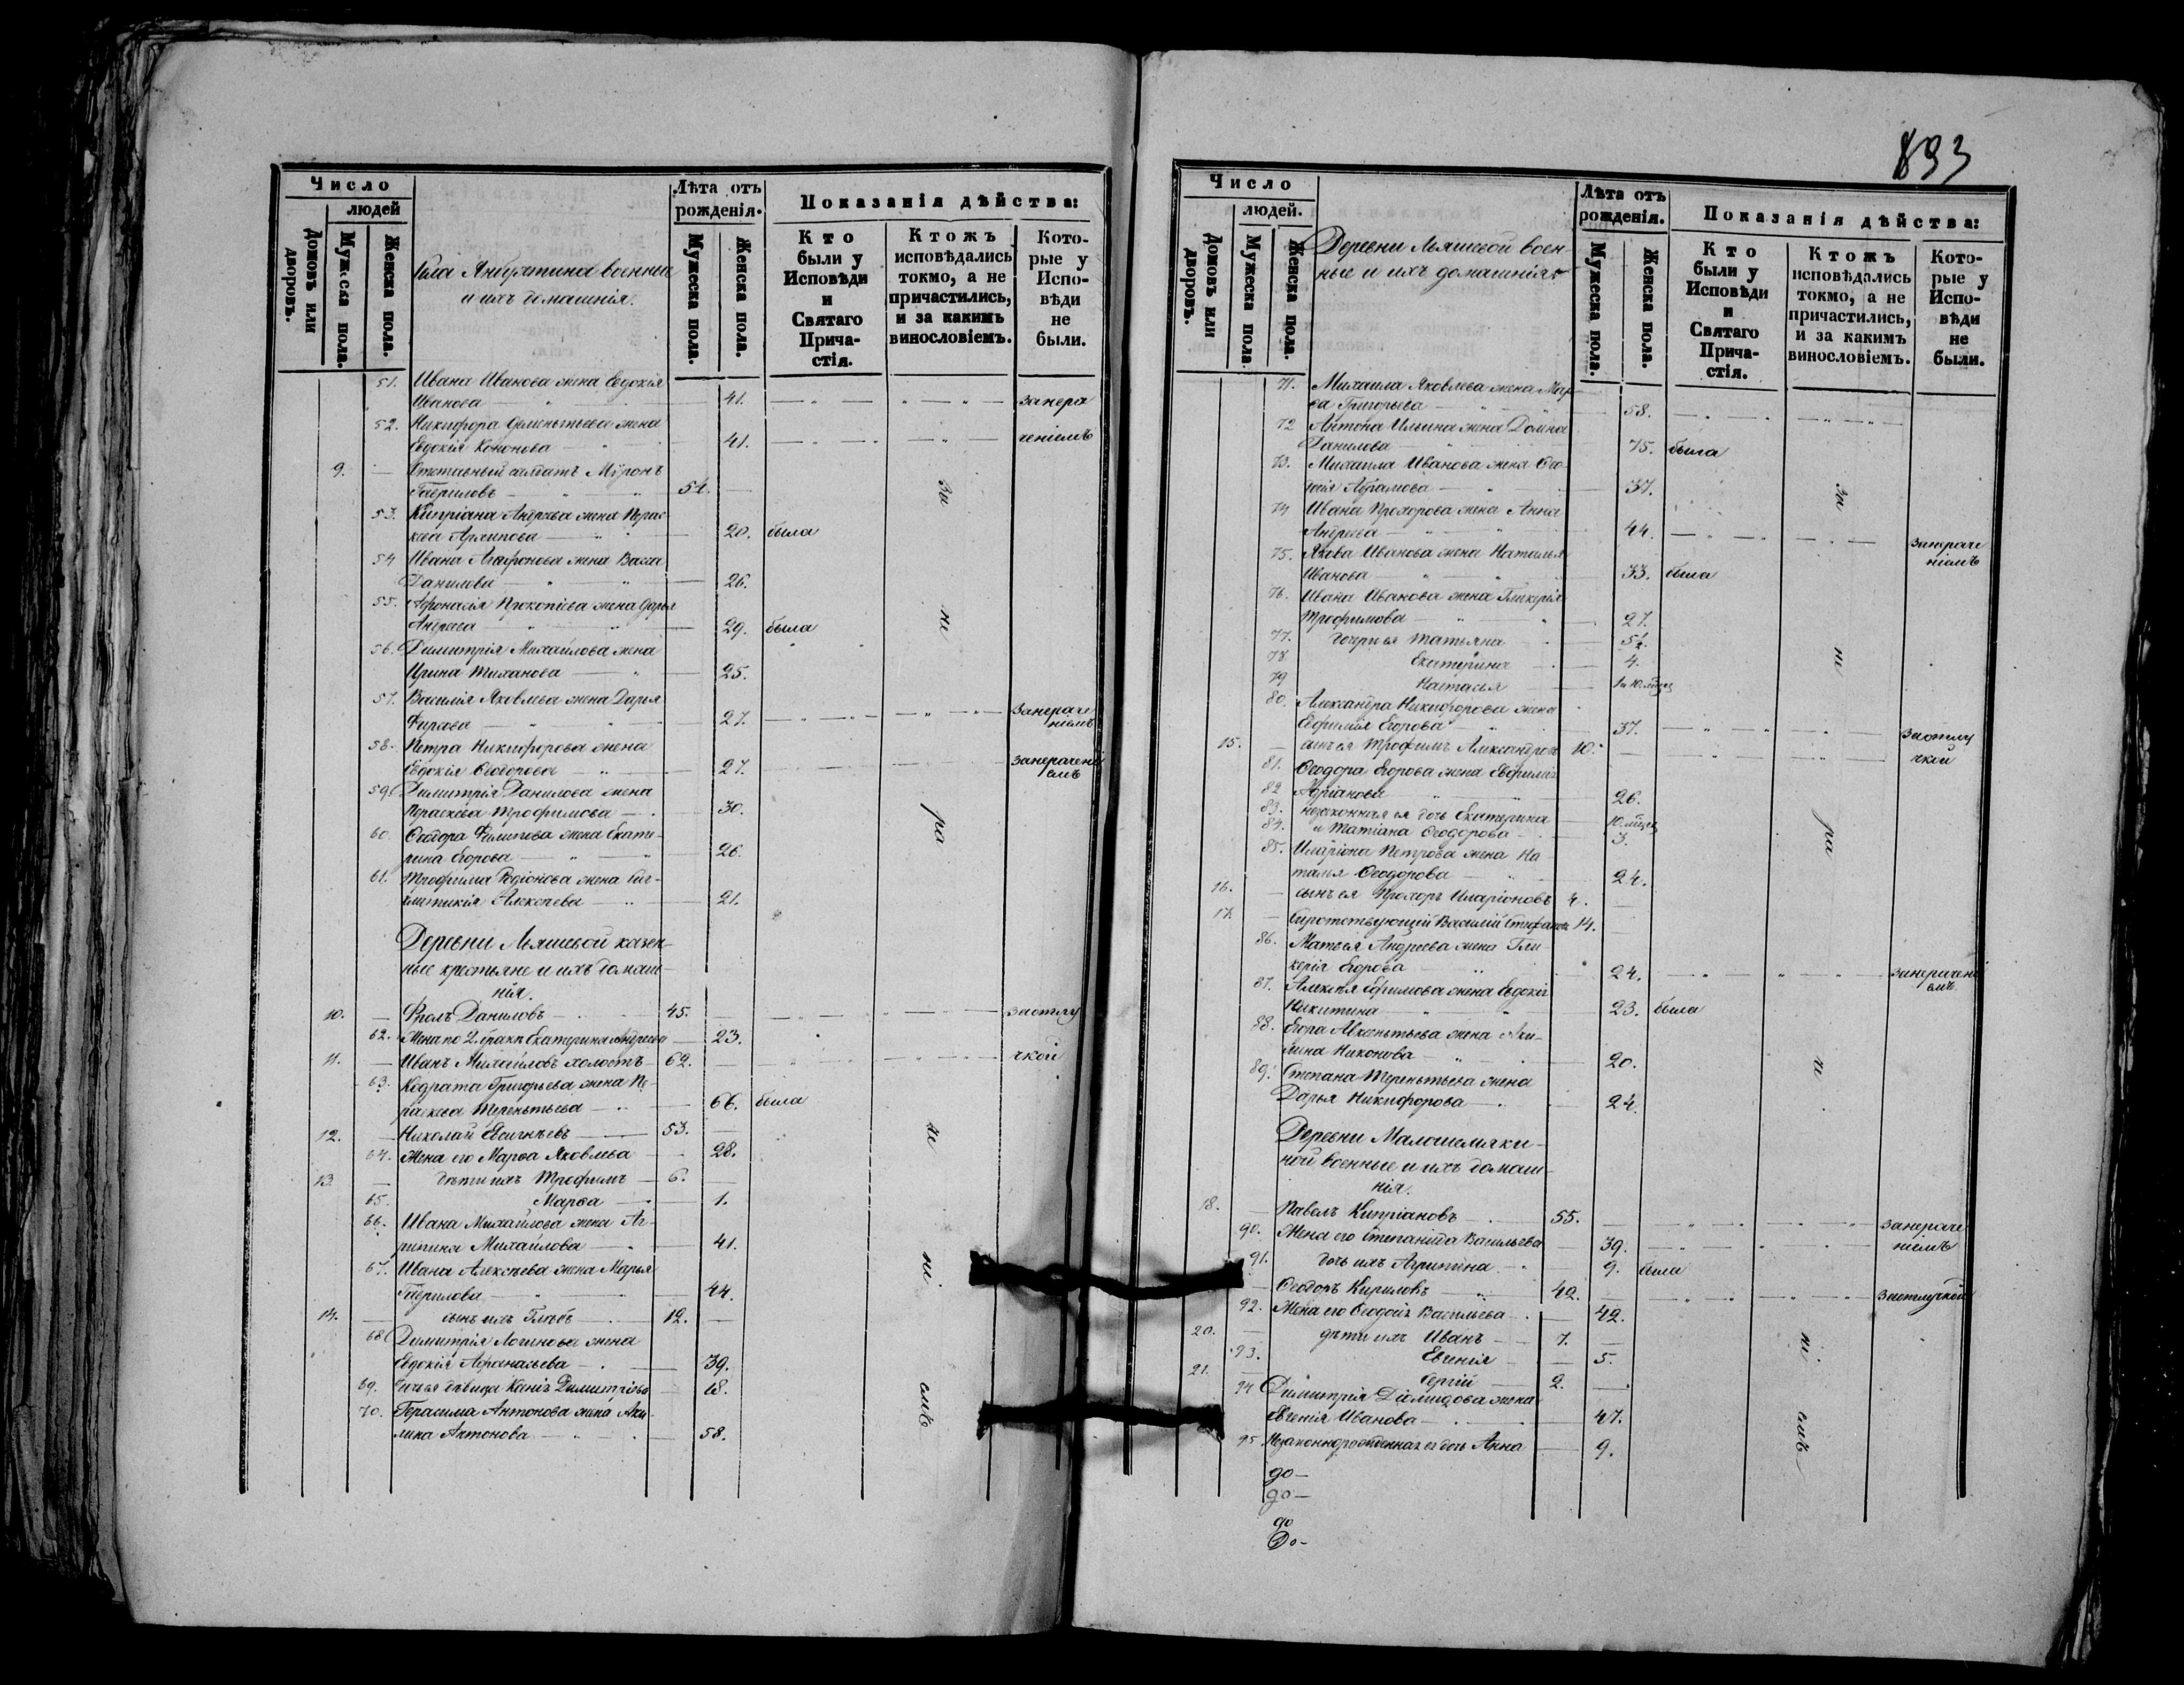 Число
людей
Домовъ или дворовъ.
Мужеска пола.
Женска пола.
Села Янбухтина военные
и ихъ домашнія.
Лѣта отъ
рожденія.
Мужеска пола.
Женска пола.
Показанія дѣйства:
Кто
были у
Исповѣди
и
Святаго
Прича-
стія.
Ктожъ
исповѣдались
токмо, а не
причастились,
и за какимъ
винословіемъ.
Кото-
рые у
Испо-
вѣди
не
были.
51. Ивана Иванова жена Евдокія
Иванова 41. занера
52. Никифора Дементьева жена
Евдокія Кононова 41. ченіемъ
9. Отставный салдатъ Миронъ
Гавриловъ 51.
53. Кипріана Андреева жена Парас-
кева Архипова 20. была
54 Ивана Агафонова жена Васса
Данилова 26.
55. Афонасія Прокопіева жена Дарья
Андреева 29. была
56. Димитрія Михайлова жена
Ирина Тиханова 25.
57. Василія Яковлева жена Дарья
Фирсова 27. занераче
ніемъ
58. Петра Никифорова жена
Евдокія Ѳеодорова 27. занерачені
емъ
59. Димитрія Данилова жена
Параскева Трофимова 30.
60. Ѳеодора Филипова жена Екате-
рина Егорова 26.
61. Трофима Родіонова жена
Алексеева 21.
Деревни Льяшевой казен-
ные крестьяне и ихъ домаш-
нія.
10. Фролъ Даниловъ 45. заотлу
62. Жена по 2. бракѣ Екатерина Андреева 23.
11. Иванъ Михайловъ холостъ 62. чкой
63. Кодрата Григорьева жена Па-
раскева Терентьева 66. была
12. Николай Евсигнѣевъ 53.
64. Жена его Марѳа Яковлева 28.
13. дѣти ихъ Трофимъ 6.
65. Марѳа 1.
66. Ивана Михайлова жена Аг-
рипина Михайлова 41.
67. Ивана Алексѣева жена Марья
Гаврилова 44.
14. сынъ ихъ Глѣбъ 12.
68. Димитрія Логинова жена
Евдокія Афанасьева 39.
69. дѣвица Ксенія Димитріева 18.
70. Герасима Антонова жена Аку-
лина Антонова 58.
за не ра че ні емъ
893
Число
людей.
Домовъ или дворовъ.
Мужеска пола
Женска пола.
Деревни Льяшевой воен-
ные и ихъ домашнія
Лѣта отъ
рожденія.
Мужеска пола.
Женска пола.
Показанія дѣйства:
Кто
были у
Исповѣди
и
Святаго
Прича-
стія.
Ктожъ
исповѣдались
токмо, а не
причастились,
и за какимъ
винословіемъ.
Кото-
рые у
Испо-
вѣди
не
были.
71. Михаила Яковлева жена Мар
ѳа Григорьева 58.
72 Антона Ильина жена Домна
Данилова 75. была
73. Михаила Иванова жена Ѳео-
досія Абрамова 37.
74 Ивана Прохорова жена Анна
Андреева 44. занераче
ніемъ
75. Якова Иванова жена Наталья
Иванова 33. была
76. Ивана Иванова жена Гликерія
Трофимова 27.
77. дочери ея Татьяна 5½.
78 Екатерина 4.
79 Настасья 1 и 10. мѣсяц
80. Александра Никифорова жена
Евфимія Егорова 37. заотлу
15. сынъ ея Трофимъ Александровъ 10. чкой
81. Ѳеодора Егорова жена Евфимія
82 Адріанова 26.
83. незаконная ея дочь Екатерина 10. мѣсяц
84. и Татіана Ѳеодорова 3.
85. Иларіона Петрова жена На-
талья Ѳеодорова 24.
16. сынъ ея Прохоръ Иларіоновъ 4.
17. Сиротствующій Василій Стефановъ 14.
86. Матвея Андреева жена Гли
керія Егорова 24. занерачені
емъ.
87. Алексѣя Ефимова жена Евдокія
Никитина 23. была
88. Егора Авксентьева жена Аку-
лина Никонова 20.
89. Степана Терентьева жена
Дарья Никифорова 24.
Деревни Малошемяки-
ной военные и ихъ домаш-
нія.
18. Павелъ Кипріановъ 55. занераче
90. Жена его Степанида Васильева 39. ніемъ
91. дочь ихъ Агрипина 9. была
Ѳеодоръ Кириловъ 42. заотлучкой
92. Жена его Ѳеодосія Васильева 42.
20. дѣти ихъ Иванъ 7.
93. Евгенія 5.
21. Сергій 2.
94 Димитрія Діомидова жена
Евгенія Иванова 47.
95. Незаконнорожденная ея дочь Анна 9.
за не ра че ні емъ
до-
до-
до
До-